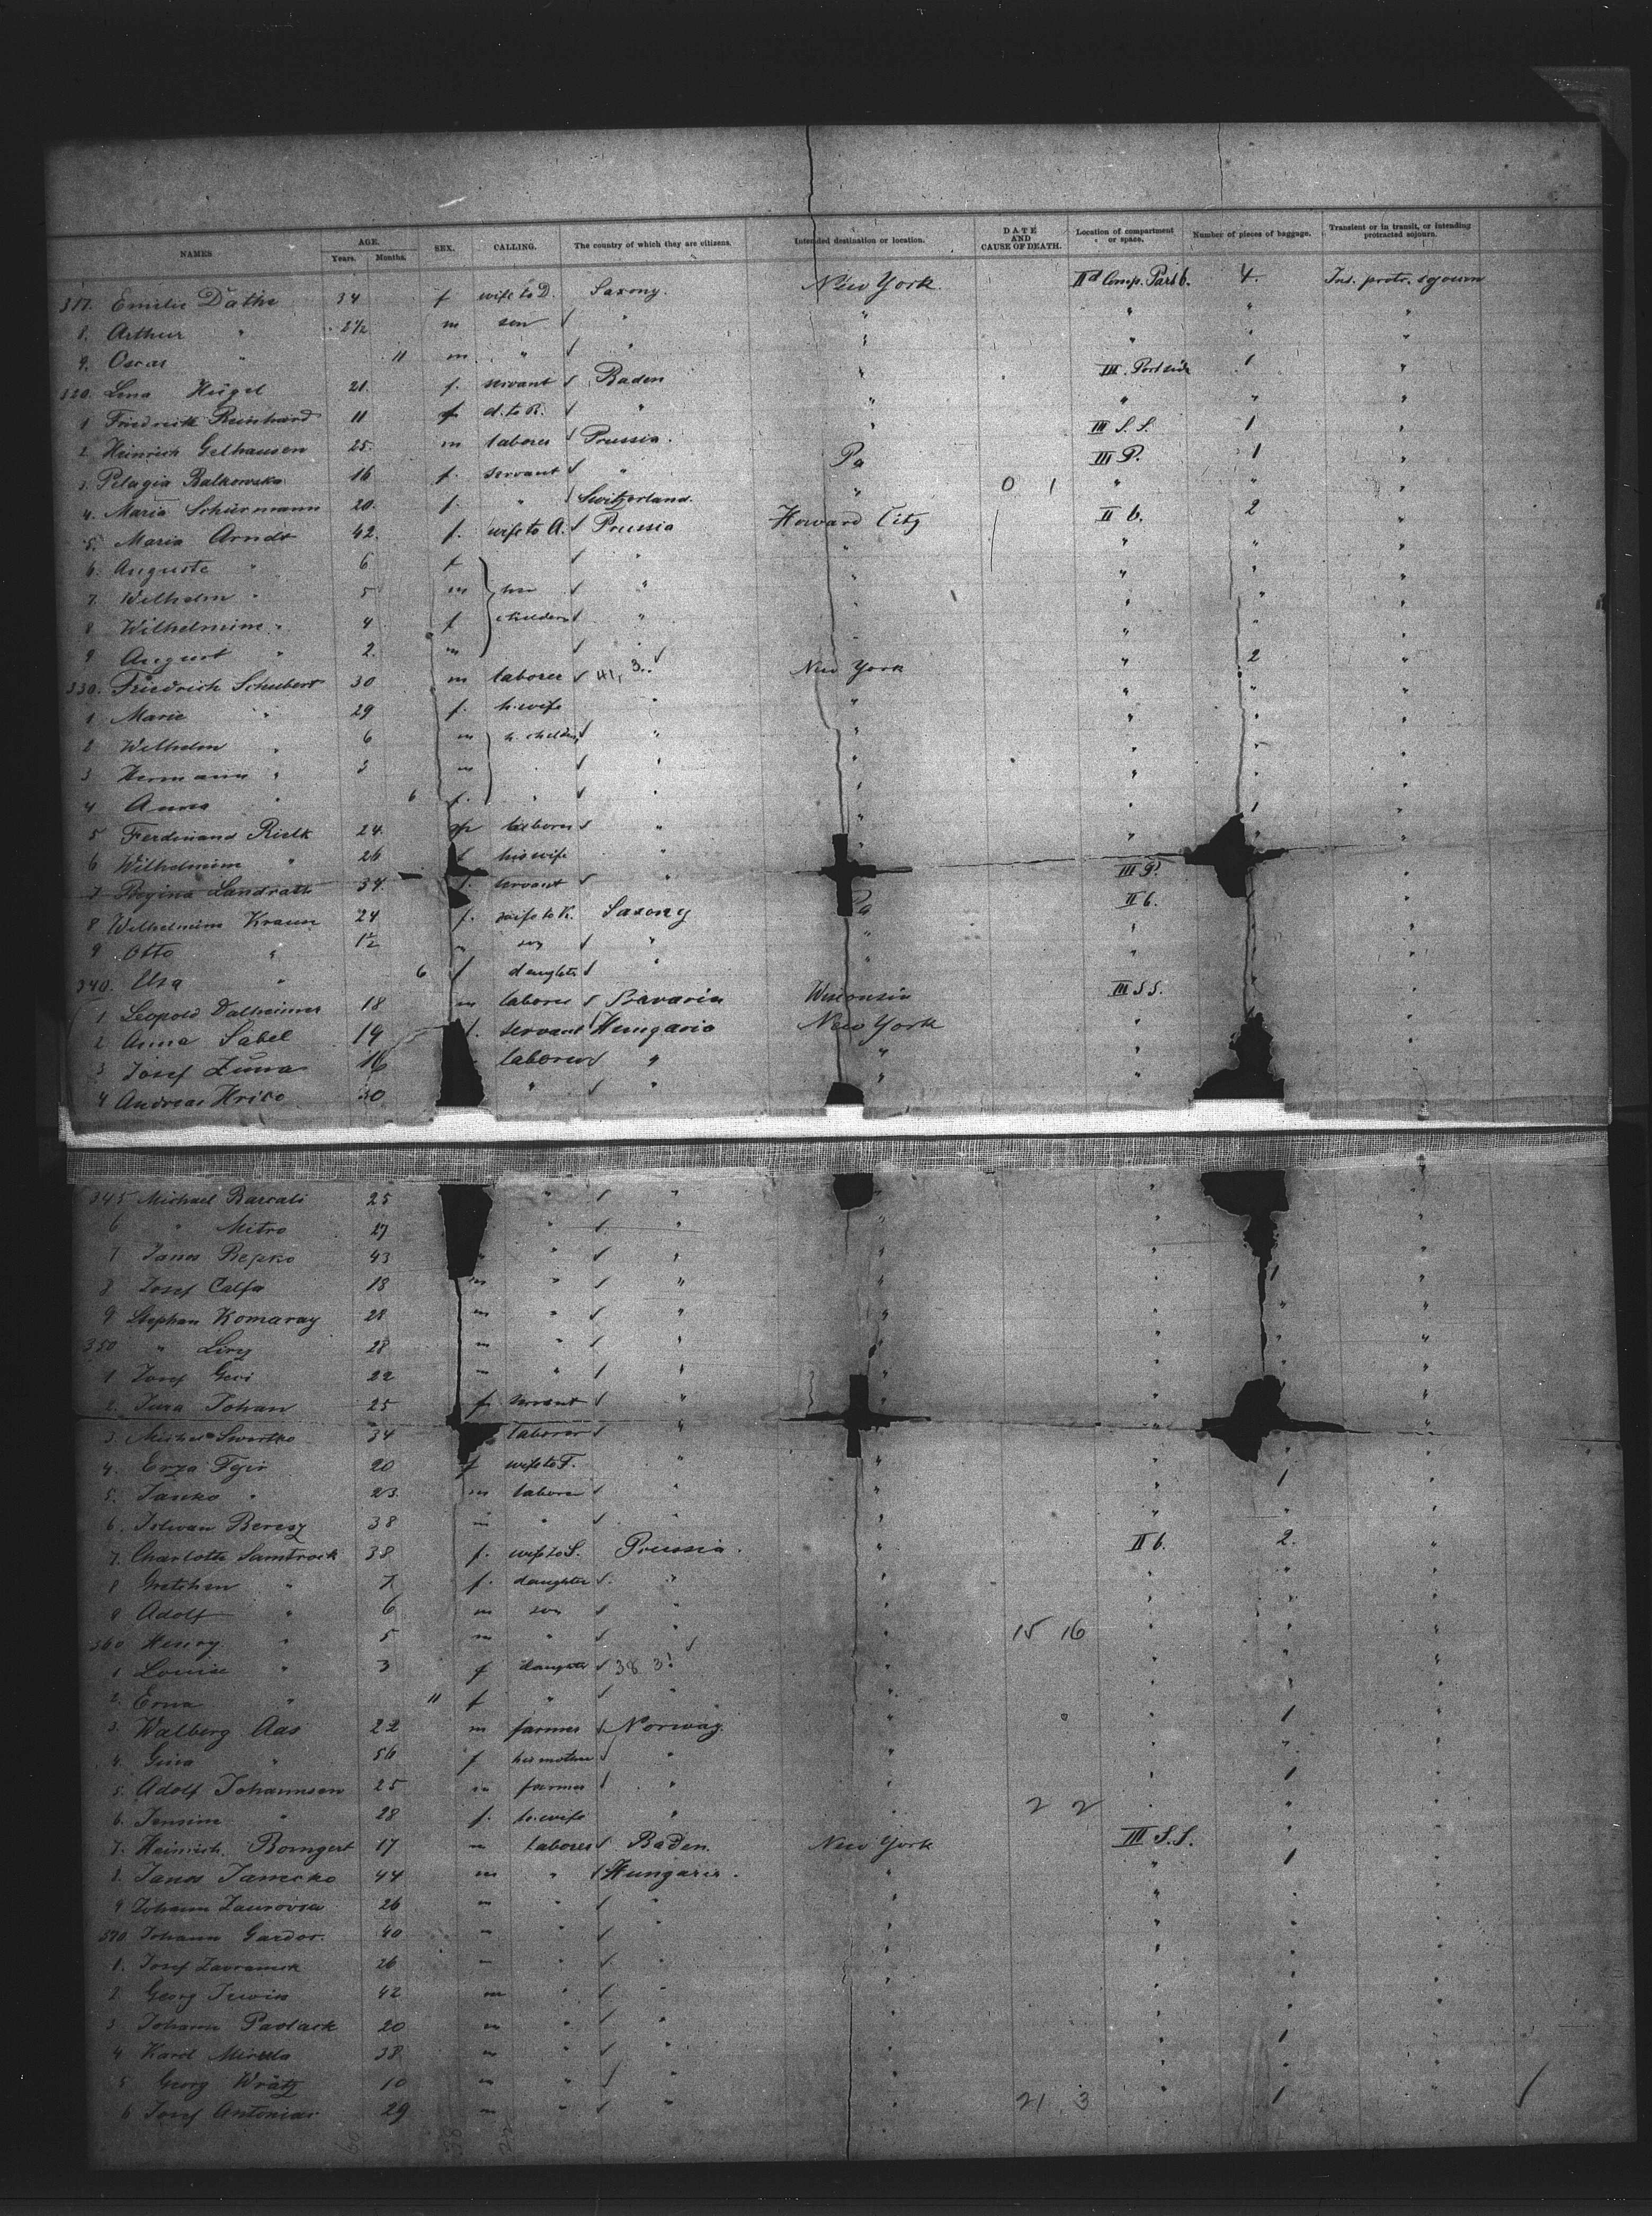 NAMES AGE. Years. Months. SEX. CALLING. The country of which they are citizens. Intended destination or location. DATE AND CAUSE OF DEATH. Location of compartment or space. Number of pieces of baggage. Transient or in transit, or intending protracted sojourn.
317. Emilie Däthe 34 f wife to D. Saxony. New York. IId Comp. Part b. 4. Int. protr. sojourn
8. Arthur " 2 1/2 m son " " " " "
9. Oscar " 11 m " " " " " "
320. Lena Hügel 21. f. servant Baden " III. Portside 1 "
1 Friedrich Reinhard 11 f d. to R. " " " " "
2 Heinrich Gelhausen 25. m laborer Prussia. " III S.S. 1 "
3. Pelagia Balkowska 16 f. servant " Pa III P. 1 "
4. Maria Schürmann 20. f. " Switzerland. " 0 1 " " "
5. Maria Arndt 42. f. wife to A. Prussia Howard City II b. 2 "
6. Auguste " 6 f " " " " "
7. Wilhelm " 5 m her " " " " "
8 Wilhelmine " 4 f children " " " " "
9 August " 2. m " " " " "
330. Friedrich Schubert 30 m laborer 41, 3. New York " 2 "
1 Marie " 29 f. h. wife " " " " "
2 Wilhelm " 6 m h. children " " " " "
3 Hermann " 3 m " " " " " "
4 Anna " 6 f. " " " " " "
5 Ferdinand Rielk 24. m laborer " " " 1 "
6 Wilhelmine " 26 f his wife " " " " "
7 Regina Landrath 34. f. servant " III P. "
8 Wilhelmine Kraun 24 f. wife to K. Saxony Pa II b. "
9 Otto " 1 1/2 m son " " " "
340. Elsa " 6 f daughter " " " "
1 Leopold Dalheimer 18 m laborer Bavaria Wisconsin III S.S. "
2 Anna Sabel 19 f. servant Hungaria New York " "
3 Josef Zuna 16 laborer " " " "
4 Andreas Hrico 30 " " " "
345 Michael Barcali 25 " " " " "
6 " Mitro 27 " " " " "
7 Janos Repko 43 " " " " " "
8 Josef Calfa 18 m " " " " 1 "
9 Stephan Komaray 28 m " " " " " "
350 " Liry 28 m " " " " " "
1 Josef Geci 22 m " " " " "
2. Jura Johan 25 f. servant " " " "
3. Swertko 34 laborer " " "
4. Erza Fgir 20 f wife to F. " " " "
5. Janko " 23. m laborer " " " 1 "
6. Istwan Beresz 38 m " " " " " "
7. Charlotte Samtrock 38 f. wife to S. Prussia. " II b. 2. "
8 Gretchen " 7 f. daughter " " " " "
9 Adolf " 6 m son " " " " "
360 Henry " 5 m " " " 15 16 " " "
1 Louise " 3 f daughter 38 3! " " " "
2. Erna " 11 f " " " " " "
3. Walberg Aas 22 m farmer Norway. " " 1 "
4. Gina " 56 f his mother " " " " "
5. Adolf Johannsen 25 m farmer " " " 1 "
6. Jensine " 28 f. h. wife " " 2 2 " " "
7. Heinrich Bomgert 17 m laborer Baden. New York III S.S. " "
8. Janos Janecko 44 m " Hungaria. " " 1 "
9 Johann Zaurovia 26 m " " " " " "
370 Johann Gardos. 40 m " " " " " "
1. Josef Zavramek 26 m " " " " " "
2 Georg Juwis 42 m " " " " " "
3 Johann Pavlack 20 m " " " " " "
4 Karol Mirella 38. m " " " " 1 "
5 Georg Wrätz 10 m " " " " " "
6 Josef Antonias 29 m " " " 21 3 " 1 "
60 38 22